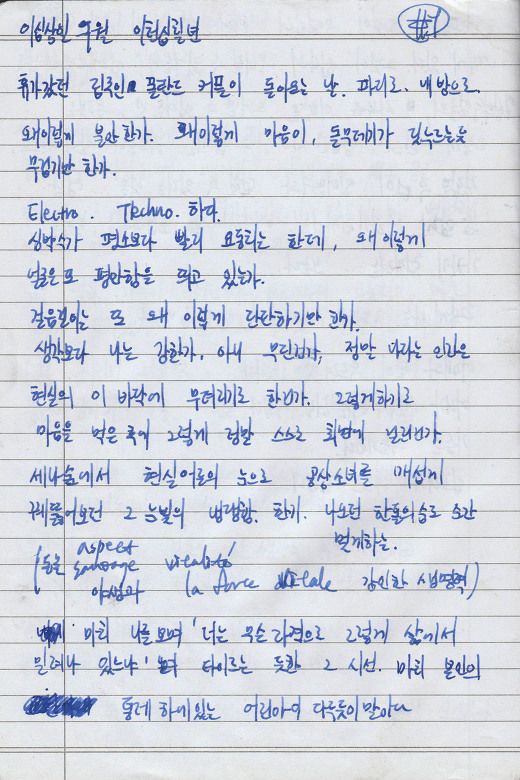 이십삼인 구월 이천십칠년
#1
휴가갔던 집주인 폴란드 커플이 돌아오는 날. 파리로. 내 방으로.
왜이렇게 불안한가. 왜이렇게 마음이, 돌무데기가 짓누르는듯
무겁기만 한가.
Electro. Techno. 하다.
심박수가 평소보다 빨리 요동치는 한데, 왜 이렇게
얼굴은 또 평안함을 띄고 있는가.
걸음걸이는 또 왜 이렇게 단단하기만 한가.
생각보다 나는 강한가. 아니 무딘건가, 정말 나라는 인간은
현실의 이 바닥에 무뎌지기로 한건가. 그렇게하기로
마음을 먹은 후에 그렇게 정말 스스로 최면에 걸린건가.
세나숲에서 현실어른의 눈으로 공상소녀를 매섭게
꿰뚫어보던 그 눈빛의 냉담함. 한기. 나오던 한줄의숨도 순간
멎게하는.
(동물 aspect sauvage vitalité
야생과 la force vitale 강인한 생명력)
마치 나를 보며 '너는 무슨 자격으로 그렇게 삶에서
밀려나 있느냐' 타이르는 듯한 그 시선. 마치 본인의
통레 하에있는 어린아이 다루듯이 말이다